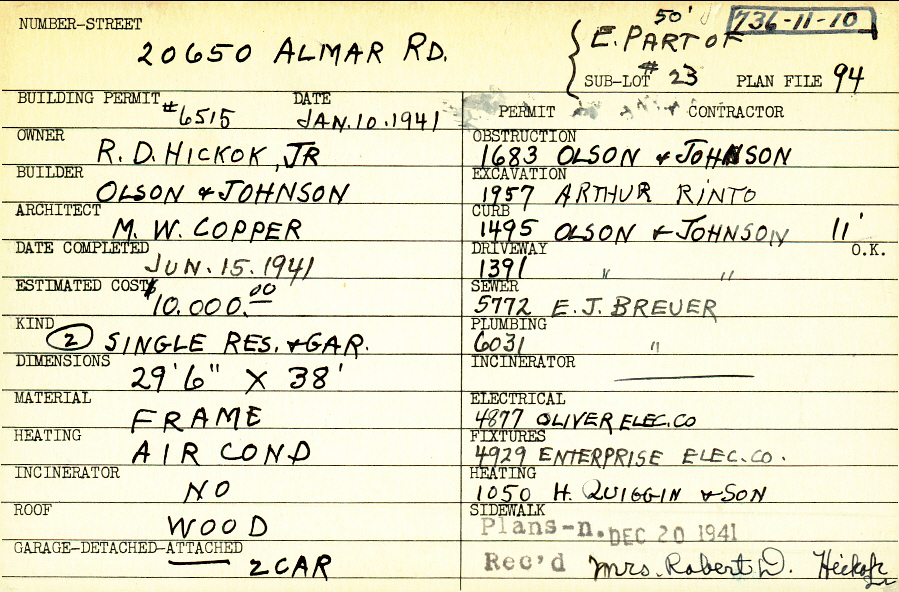 NUMBER-STREET
20650 ALMAR RD.
50' 736-11-10
E. PART OF
SUB-LOT # 23 PLAN FILE 94
BUILDING PERMIT #6515 DATE JAN. 10. 1941
PERMIT CONTRACTOR
OWNER
R. D. HICKOK, JR
BUILDER
OLSON & JOHNSON
ARCHITECT
M. W. COPPER
DATE COMPLETED
JUN. 15. 1941
ESTIMATED COST
$10.000.00
KIND
② SINGLE RES. & GAR.
DIMENSIONS
29'6" X 38'
MATERIAL
FRAME
HEATING
AIR COND
INCINERATOR
NO
ROOF
WOOD
GARAGE-DETACHED-ATTACHED
2 CAR
OBSTRUCTION
1683 OLSON & JOHNSON
EXCAVATION
1957 ARTHUR RINTO
CURB
1495 OLSON & JOHNSON 11'
DRIVEWAY O.K.
1391 " "
SEWER
5772 E. J. BREUER
PLUMBING
6031 "
INCINERATOR
ELECTRICAL
4877 OLIVER ELEC. CO
FIXTURES
4929 ENTERPRISE ELEC. CO.
HEATING
1050 H. QUIGGIN & SON
SIDEWALK
Plans-n. DEC 20 1941
Rec'd Mrs. Robert D. Hickok Jr